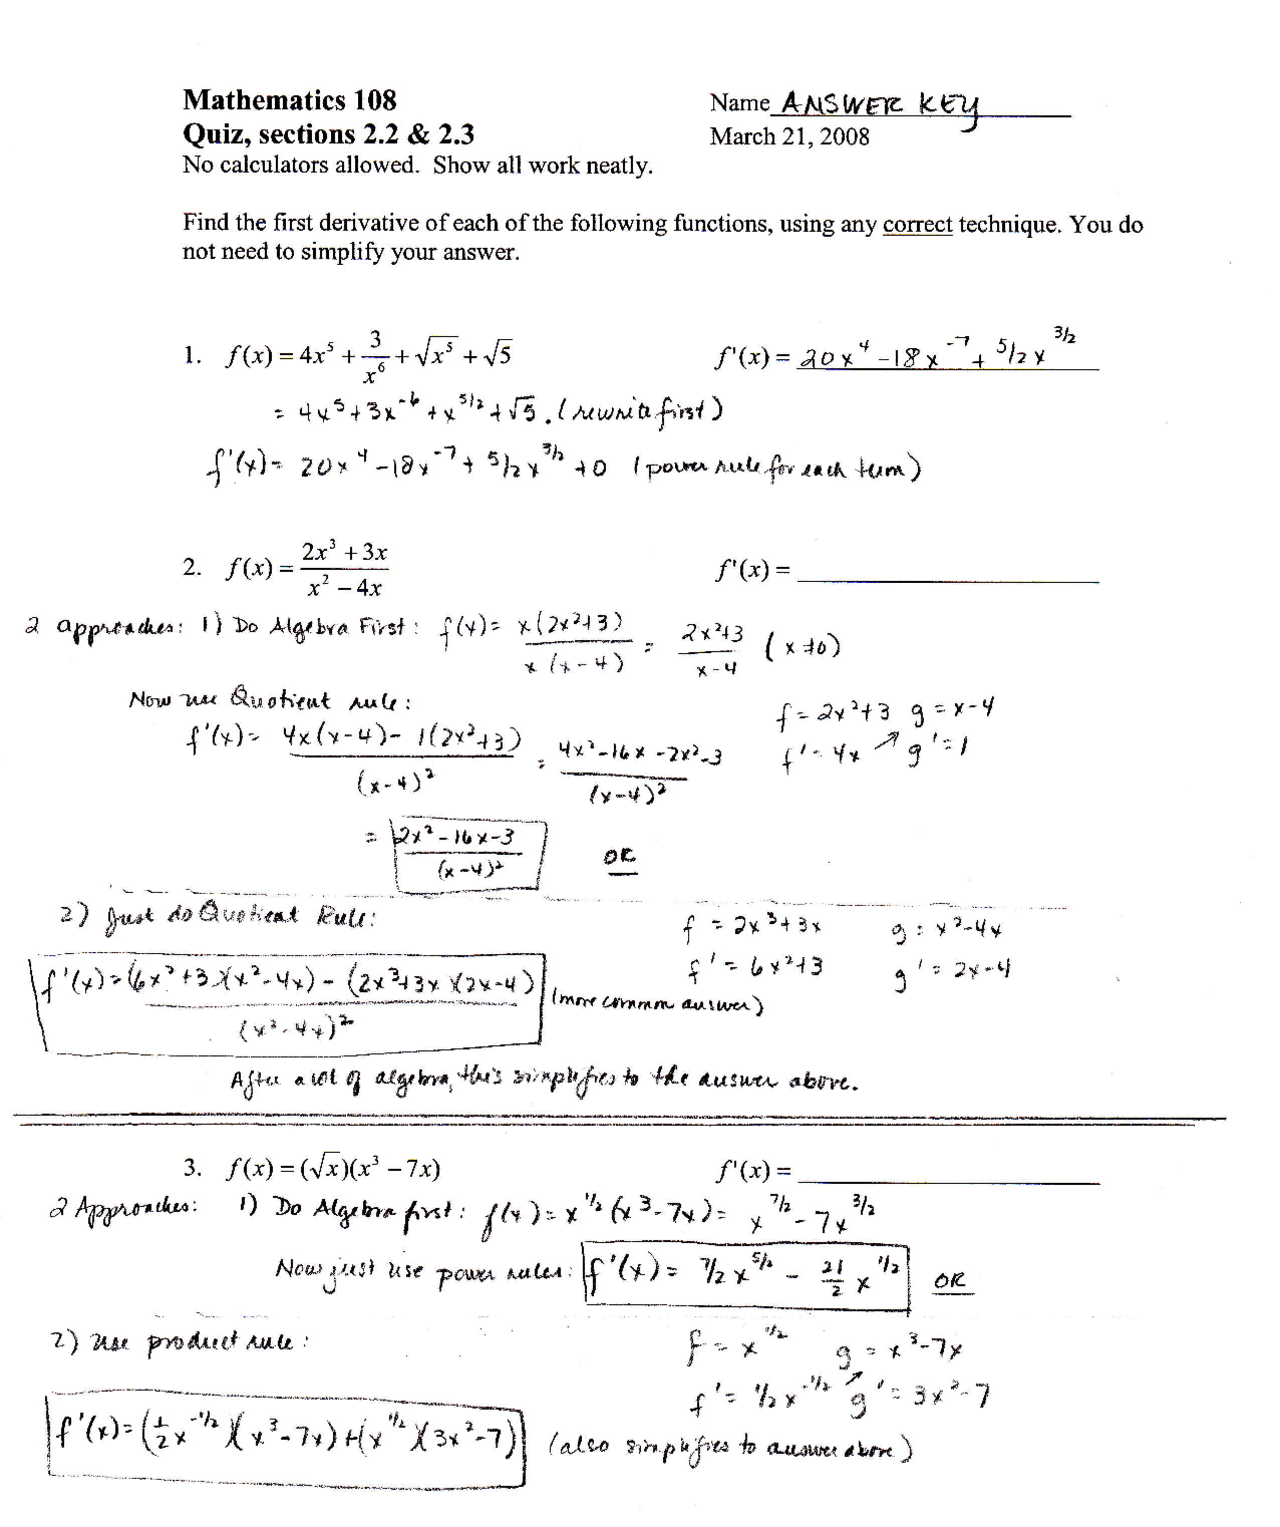 Mathematics 108 Name ANSWER KEY
Quiz, sections 2.2 & 2.3 March 21, 2008
No calculators allowed. Show all work neatly.
Find the first derivative of each of the following functions, using any correct technique. You do
not need to simplify your answer.
1. f(x) = 4x⁵ + 3/x⁶ + √x⁵ + √5 f'(x) = 20x⁴ - 18x⁻⁷ + 5/2 x^(3/2)
= 4x⁵ + 3x⁻⁶ + x^(5/2) + √5. (rewrite first)
f'(x) = 20x⁴ - 18x⁻⁷ + 5/2 x^(3/2) + 0 (power rule for each term)
2. f(x) = (2x³ + 3x)/(x² - 4x) f'(x) =
2 approaches: 1) Do Algebra First: f(x) = x(2x²+3)/x(x-4) = (2x²+3)/(x-4) (x≠0)
Now use Quotient rule: f = 2x²+3 g = x-4
f'(x) = (4x(x-4) - 1(2x²+3))/(x-4)² = (4x²-16x-2x²-3)/(x-4)² f' = 4x g' = 1
= (2x²-16x-3)/(x-4)² OR
2) Just do Quotient Rule: f = 2x³+3x g = x²-4x
f'(x) = ((6x²+3)(x²-4x) - (2x³+3x)(2x-4))/(x²-4x)² (more common answer) f' = 6x²+3 g' = 2x-4
After a lot of algebra, this simplifies to the answer above.
3. f(x) = (√x)(x³ - 7x) f'(x) =
2 Approaches: 1) Do Algebra first: f(x) = x^(1/2)(x³-7x) = x^(7/2) - 7x^(3/2)
Now just use power rules: f'(x) = 7/2 x^(5/2) - 21/2 x^(1/2) OR
2) Use product rule: f = x^(1/2) g = x³-7x
f' = 1/2 x^(-1/2) g' = 3x²-7
f'(x) = (1/2 x^(-1/2))(x³-7x) + (x^(1/2))(3x²-7) (also simplifies to answer above)